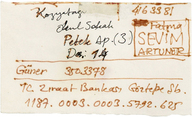 Kozyatağı
Okul Sokak
Petek Ap. (3)
Da: 14
4163381
Fatma
SEVİM
ARTUNER
Güner 3503378
TC Ziraat Bankası Göztepe Şb.
1187. 0003. 0003. 5792. 625